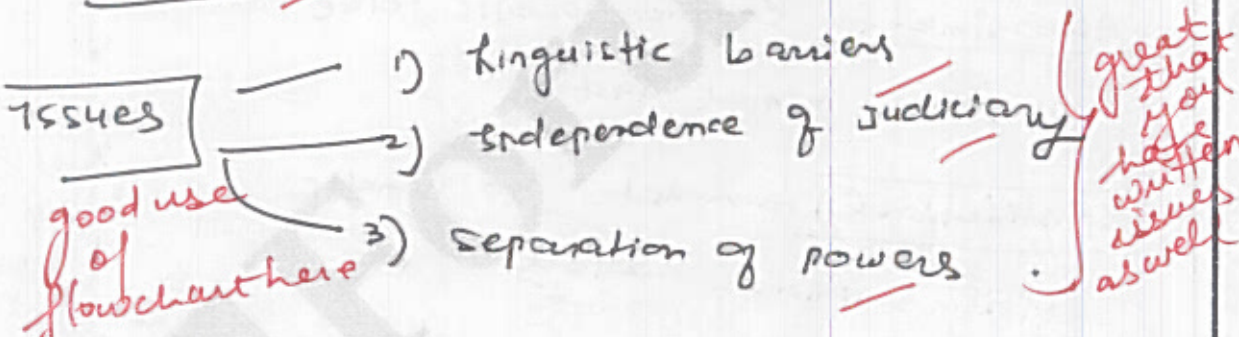 Issues
1) Linguistic barriers
2) Independence of Judiciary
3) Separation of powers.
good use
of
flowchart here
great
that
you
have
written
issues
as well